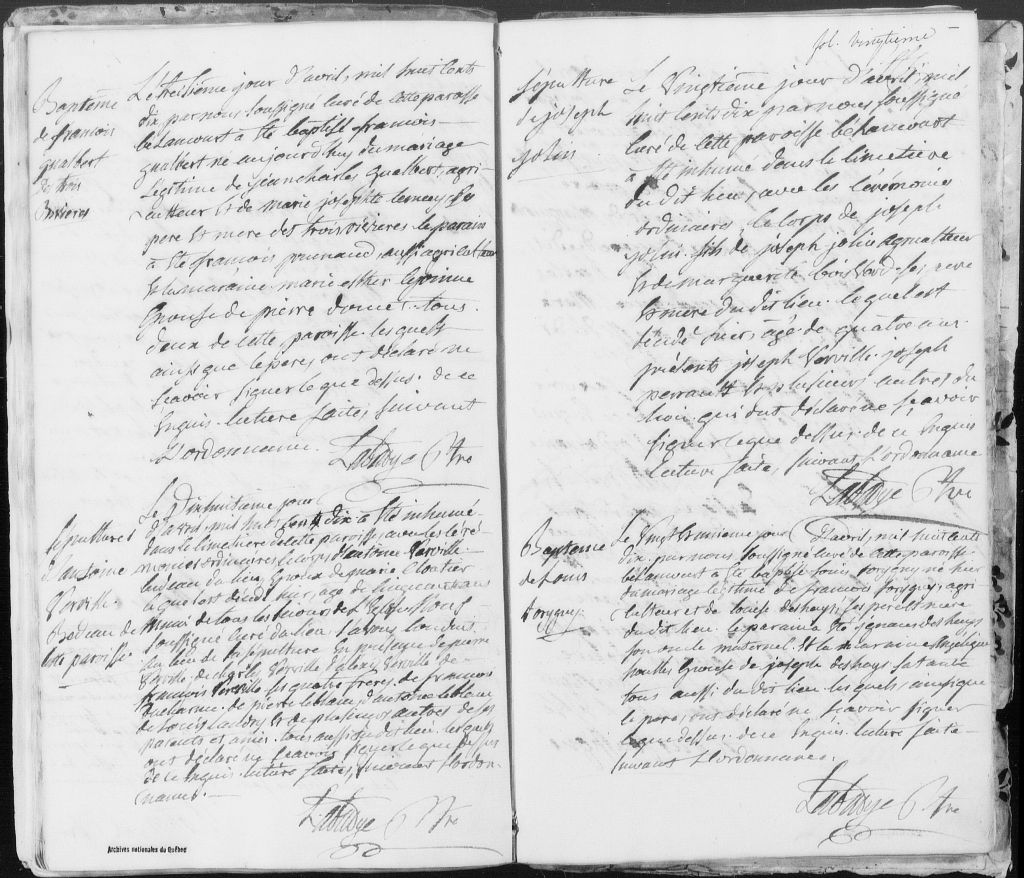 Baptême
de françois
gualbert
des trois
Rivieres
Le treisieme jour d'avril, mil huit cents
dix par nous soussigné curé de cette paroisse
becancourt a été baptisé françois
gualbert né aujourd'huy du mariage
légitime de jean charles gualbert, agri-
culteur et de marie josephte lemay ses
pere et mere des trois rivieres. le parain
a été françois prunaud, aussi agriculteur
et la maraine marie esther
Epouse de pierre tous
deux de cette paroisse. lesquels
ainsi que le pere, ont déclaré ne
sçavoir signer le que dessus. de ce
Enquis. lecture faite, suivant
L'ordonnance.
Labadye Ptre
Sépulture
d'antoine
Verville
Bedeau de
cette paroisse
Le Dixhuitieme jour
d'avril mil huit cents dix a été inhumé
dans le cimetiere de cette paroisse, avec les céré-
monies ordinaires le corps d'antoine Verville
bedeau du lieu, Epoux de marie Cloutier
lequel est décédé hier, agé de cinquante ans
muni de tous les secours de L'Eglise. Nous
soussigné curé du lieu, l'avons conduit
au lieu de sa sépulture. En présence de pierre
Verville, de charles Verville d'alexis Verville de
françois Verville ses quatre freres, de françois
Ducharme. de pierre leblanc, d'antoine leblanc
de Louis Landry et de plusieurs autres de ses
parents et amis. tous aussi du dit lieu. lesquels
ont déclaré ne sçavoir signer le que dessus
de ce Enquis. lecture faite, suivant L'ordon-
nance.
Labadye Ptre
Archives nationales du Québec
fol. vingtieme
sépulture
de joseph
jolin
Le Vingtieme jour d'avril, mil
huit cents dix par nous soussigné
curé de cette paroisse bécancourt
a été inhumé dans le cimetiere
du dit lieu, avec les cérémonies
ordinaires, le corps de joseph
jolin. fils de joseph jolin agriculteur
et de marguerite bois Verd ses pere
et mere du dit lieu. lequel est
décédé hier, agé de quatre ans.
présents joseph Verville. joseph
perrault et plusieurs autres du
lieu. qui ont déclaré ne sçavoir
signer le que dessus. de ce Enquis
Lecture faite, suivant L'ordonnance
Labadye Ptre
Baptême
de Louis
torigny
Le Vingt unieme jour d'avril, mil huit cents
dix. par nous soussigné curé de cette paroisse
bécancourt a été baptisé Louis torigny né hier
du mariage légitime de françois torigny, agri-
culteur et de Louise deshays, ses pere et mere
du dit lieu. le parain a été ignace deshays
son oncle maternel. Et la maraine Angelique
Epouse de joseph deshays sa tante
tous aussi du dit lieu. lesquels, ainsi que
le pere, ont déclaré ne sçavoir signer
le que dessus. de ce Enquis. lecture faite
suivant L'ordonnance.
Labadye Ptre